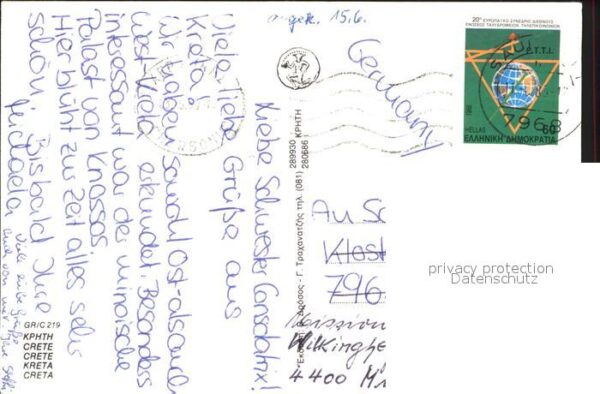 Liebe Schwester Consolatrix!
Viele liebe Grüße aus
Kreta!
Wir haben sowohl Ost- als auch
West-Kreta erkundet. Besonders
interessant war der minoische
Palast von Knossos
Hier blüht zur Zeit alles sehr
schön.
Bis bald Ihre
Michaela
Viele liebe Grüße
auch von
GR/C 219
ΚΡΗΤΗ
CRETE
CRETE
KRETA
CRETA
Γ. Τραχανατζής τηλ. (081)
289930 ΚΡΗΤΗ
280686
15.6.
Germany
20ο ΕΥΡΩΠΑΪΚΟ ΣΥΝΕΔΡΙΟ ΔΙΕΘΝΟΥΣ
ΕΝΩΣΕΩΣ ΤΑΧΥΔΡΟΜΕΙΩΝ, ΤΗΛΕΠΙΚΟΙΝΩΝΙΩΝ
P.T.T.I.
60
HELLAS
ΕΛΛΗΝΙΚΗ ΔΗΜΟΚΡΑΤΙΑ
7968
An Sc
Klost
796
Mission
Wilkinghe
4400 M
privacy protection
Datenschutz